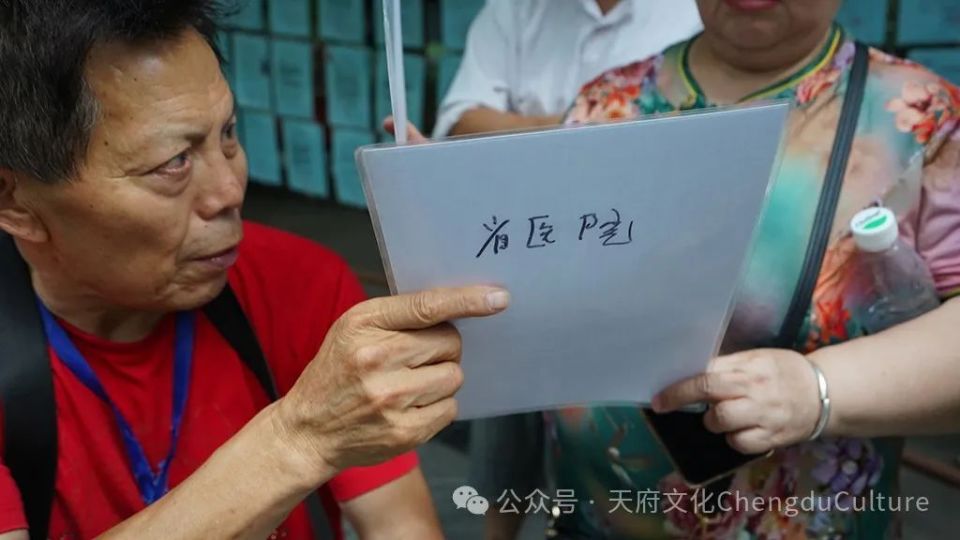 省医院
公众号 · 天府文化ChengduCulture